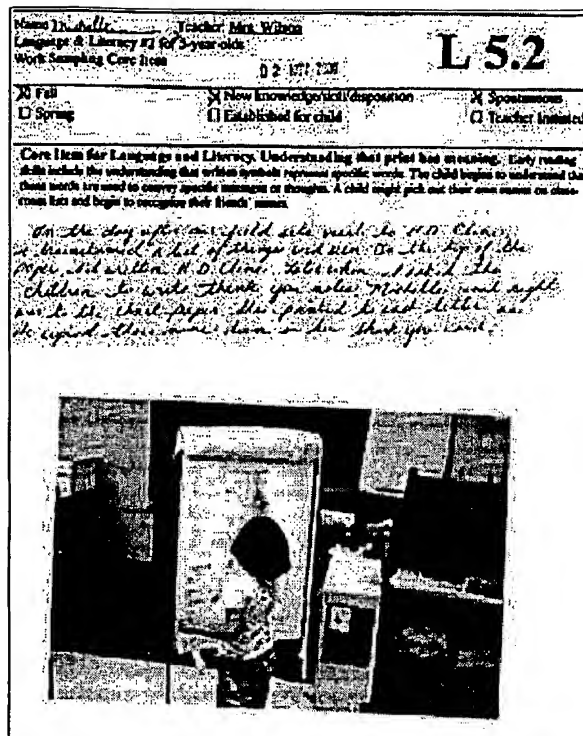 Name Michelle Teacher Mrs. Wilson
Language & Literacy #2 for 3-year-olds
Work Sampling Core Item
L 5.2
X Fall X New knowledge/skill/disposition X Spontaneous
□ Spring □ Established for child □ Teacher Initiated
Core Item for Language and Literacy, Understanding that print has meaning. Early reading
skills include the understanding that written symbols represent specific words. The child begins to understand that
these words are used to convey specific messages or thoughts. A child might pick out their own names on class-
room lists and begin to recognize their friends' names.
On the day after our field site visit to H.D. Clinic,
brainstormed a list of things we'd seen. On the top of the
paper I had written H.D. Clinic. Later when I asked the
children to write thank you notes Michelle went right
over to the chart paper. She pointed to each letter as
she copied those down on her thank you card.